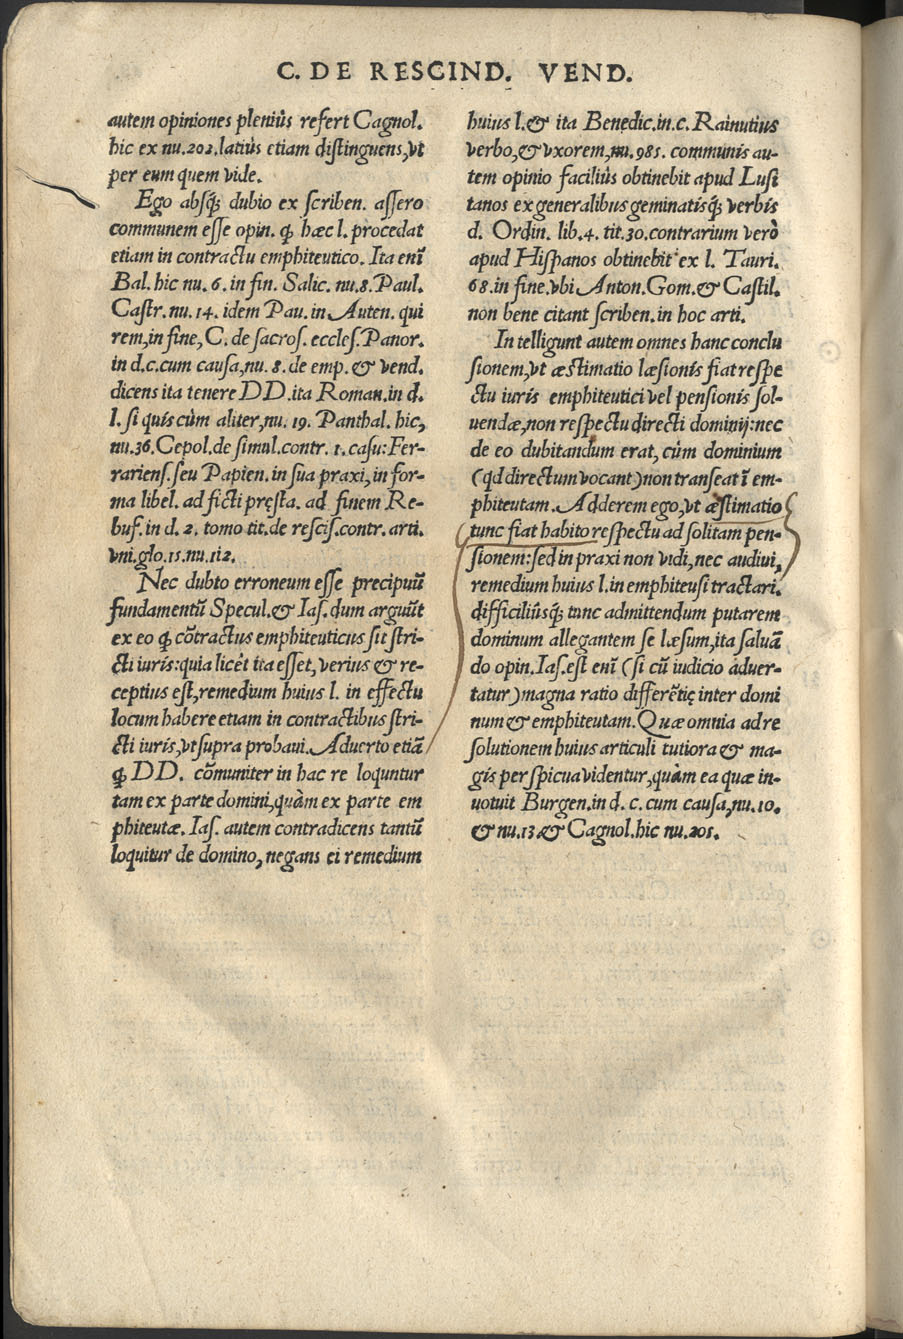 C. DE RESCIND. VEND.
autem opiniones pleniùs refert Cagnol.
hic ex nu.202.latiùs etiam distinguens,vt
per eum quem vide.
Ego absq́; dubio ex scriben. assero
communem esse opin. ꝙ hæc l. procedat
etiam in contractu emphiteutico. Ita enĩ
Bal. hic nu. 6. in fin. Salic. nu.8. Paul.
Castr. nu. 14. idem Pau. in Auten. qui
rem,in fine, C. de sacros. eccles. Panor.
in d.c.cum causa,nu. 8. de emp. & vend.
dicens ita tenere DD.ita Roman.in d.
l. si quis cùm aliter,nu. 19. Panthal. hic,
nu.36.Cepol.de simul.contr. 1. casu: Fer-
rariens.seu Papien. in sua praxi,in for-
ma libel. ad ficti pręsta. ad finem Re-
buf. in d. 2. tomo tit.de rescis.contr. arti.
vni.glo.15.nu.112.
Nec dubto erroneum esse precipuũ
fundamentũ Specul.& Ias.dum arguũt
ex eo ꝙ cõtractus emphiteuticus sit stri-
cti iuris:quia licèt ita esset, verius & re-
ceptius est,remedium huius l. in effectu
locum habere etiam in contractibus stri-
cti iuris,vt supra probaui. Aduerto etiã
ꝙ DD. cõmuniter in hac re loquntur
tam ex parte domini,quàm ex parte em
phiteutæ. Ias. autem contradicens tantũ
loquitur de domino, negans ei remedium
huius l.& ita Benedic.in.c. Rainutius
verbo,& vxorem,nu.985. communis au-
tem opinio faciliùs obtinebit apud Lusi
tanos ex generalibus geminatisq́; verbis
d. Ordin. lib.4. tit.30.contrarium verò
apud Hispanos obtinebit ex l. Tauri.
68.in fine.vbi Anton.Gom.& Castil.
non bene citant scriben.in hoc arti.
In telligunt autem omnes hanc conclu
sionem,vt æstimatio læsionis fiat respe
ctu iuris emphiteutici vel pensionis sol-
uendæ,non respectu directi dominij:nec
de eo dubitandum erat, cùm dominium
(qd directum vocant)non transeat ĩ em-
phiteutam. Adderem ego,vt æstimatio
tunc fiat habito respectu ad solitam pen-
sionem:sed in praxi non vidi,nec audiui,
remedium huius l.in emphiteusi tractari.
difficiliùsq́; tunc admittendum putarem
dominum allegantem se læsum,ita saluã
do opin.Ias.est enĩ (si cũ iudicio aduer-
tatur)magna ratio differẽtię inter domi
num & emphiteutam.Quæ omnia ad re
solutionem huius articuli tutiora & ma-
gis perspicua videntur,quàm ea quæ in-
uotuit Burgen.in d. c. cum causa,nu.10.
& nu.13 & Cagnol.hic nu.205.